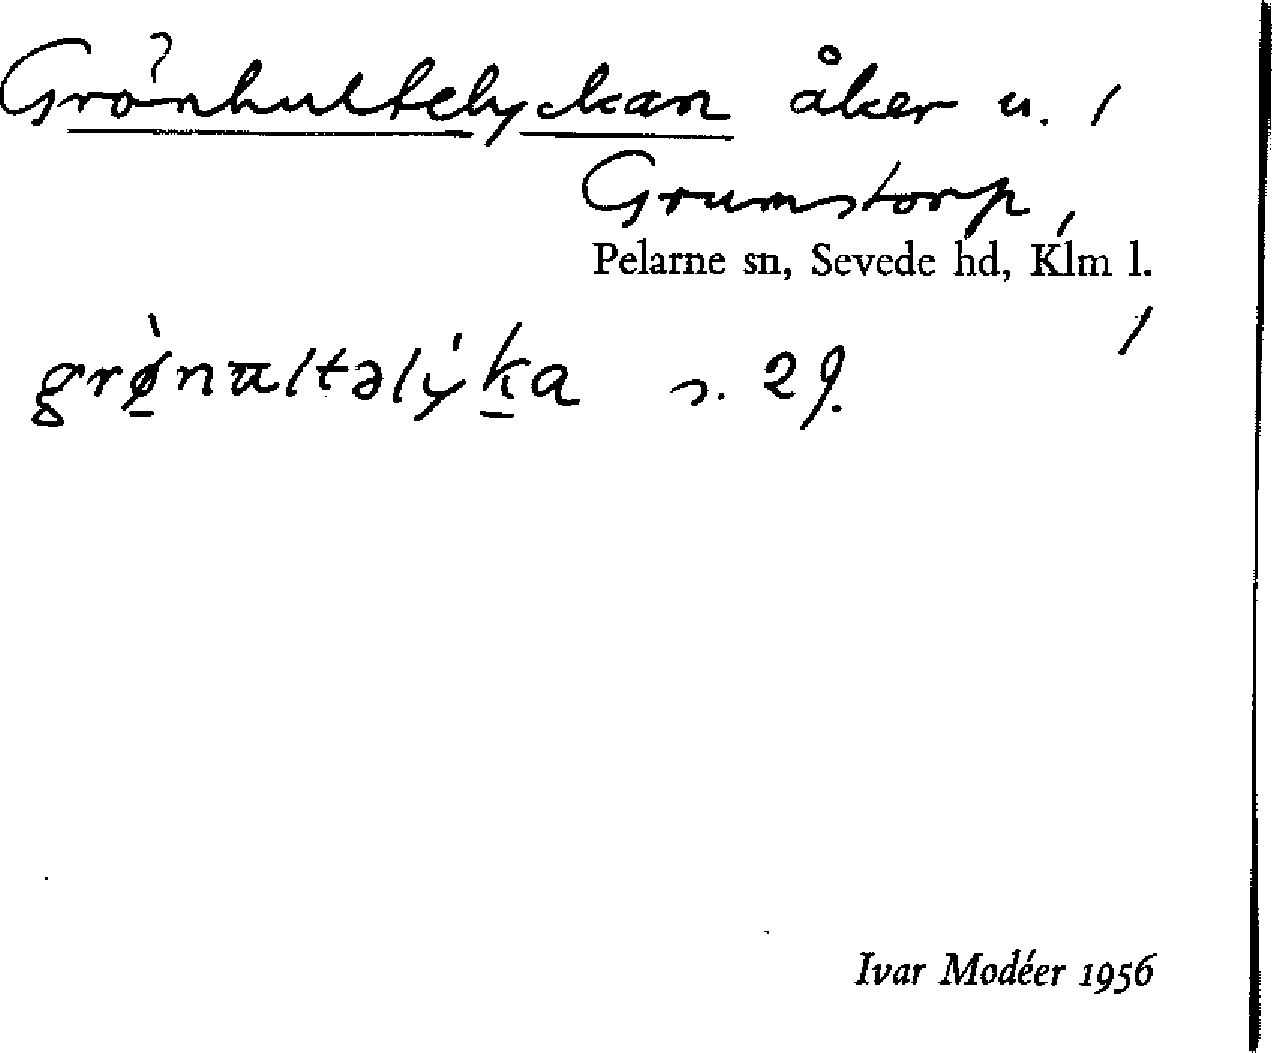 Grönhultelyckan åker u. /
Grumstorp,
Pelarne sn, Sevede hd, Klm l.
grø̀nultəlýka s. 29. /
Ivar Modéer 1956